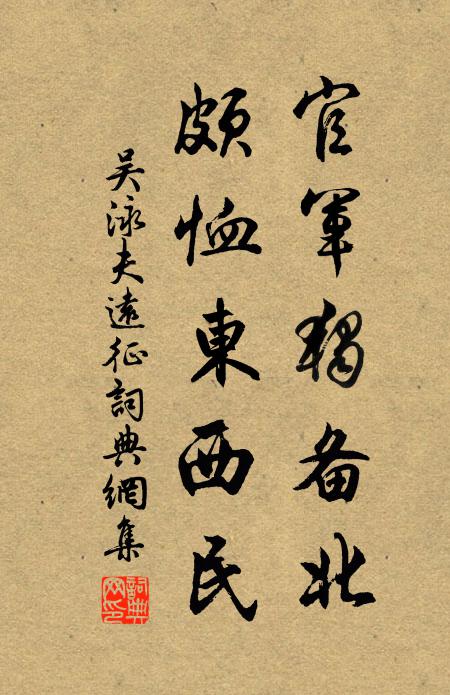 官軍獨备北
頗恤東西民
吴泳夫遠征詞典網集
詞典网印